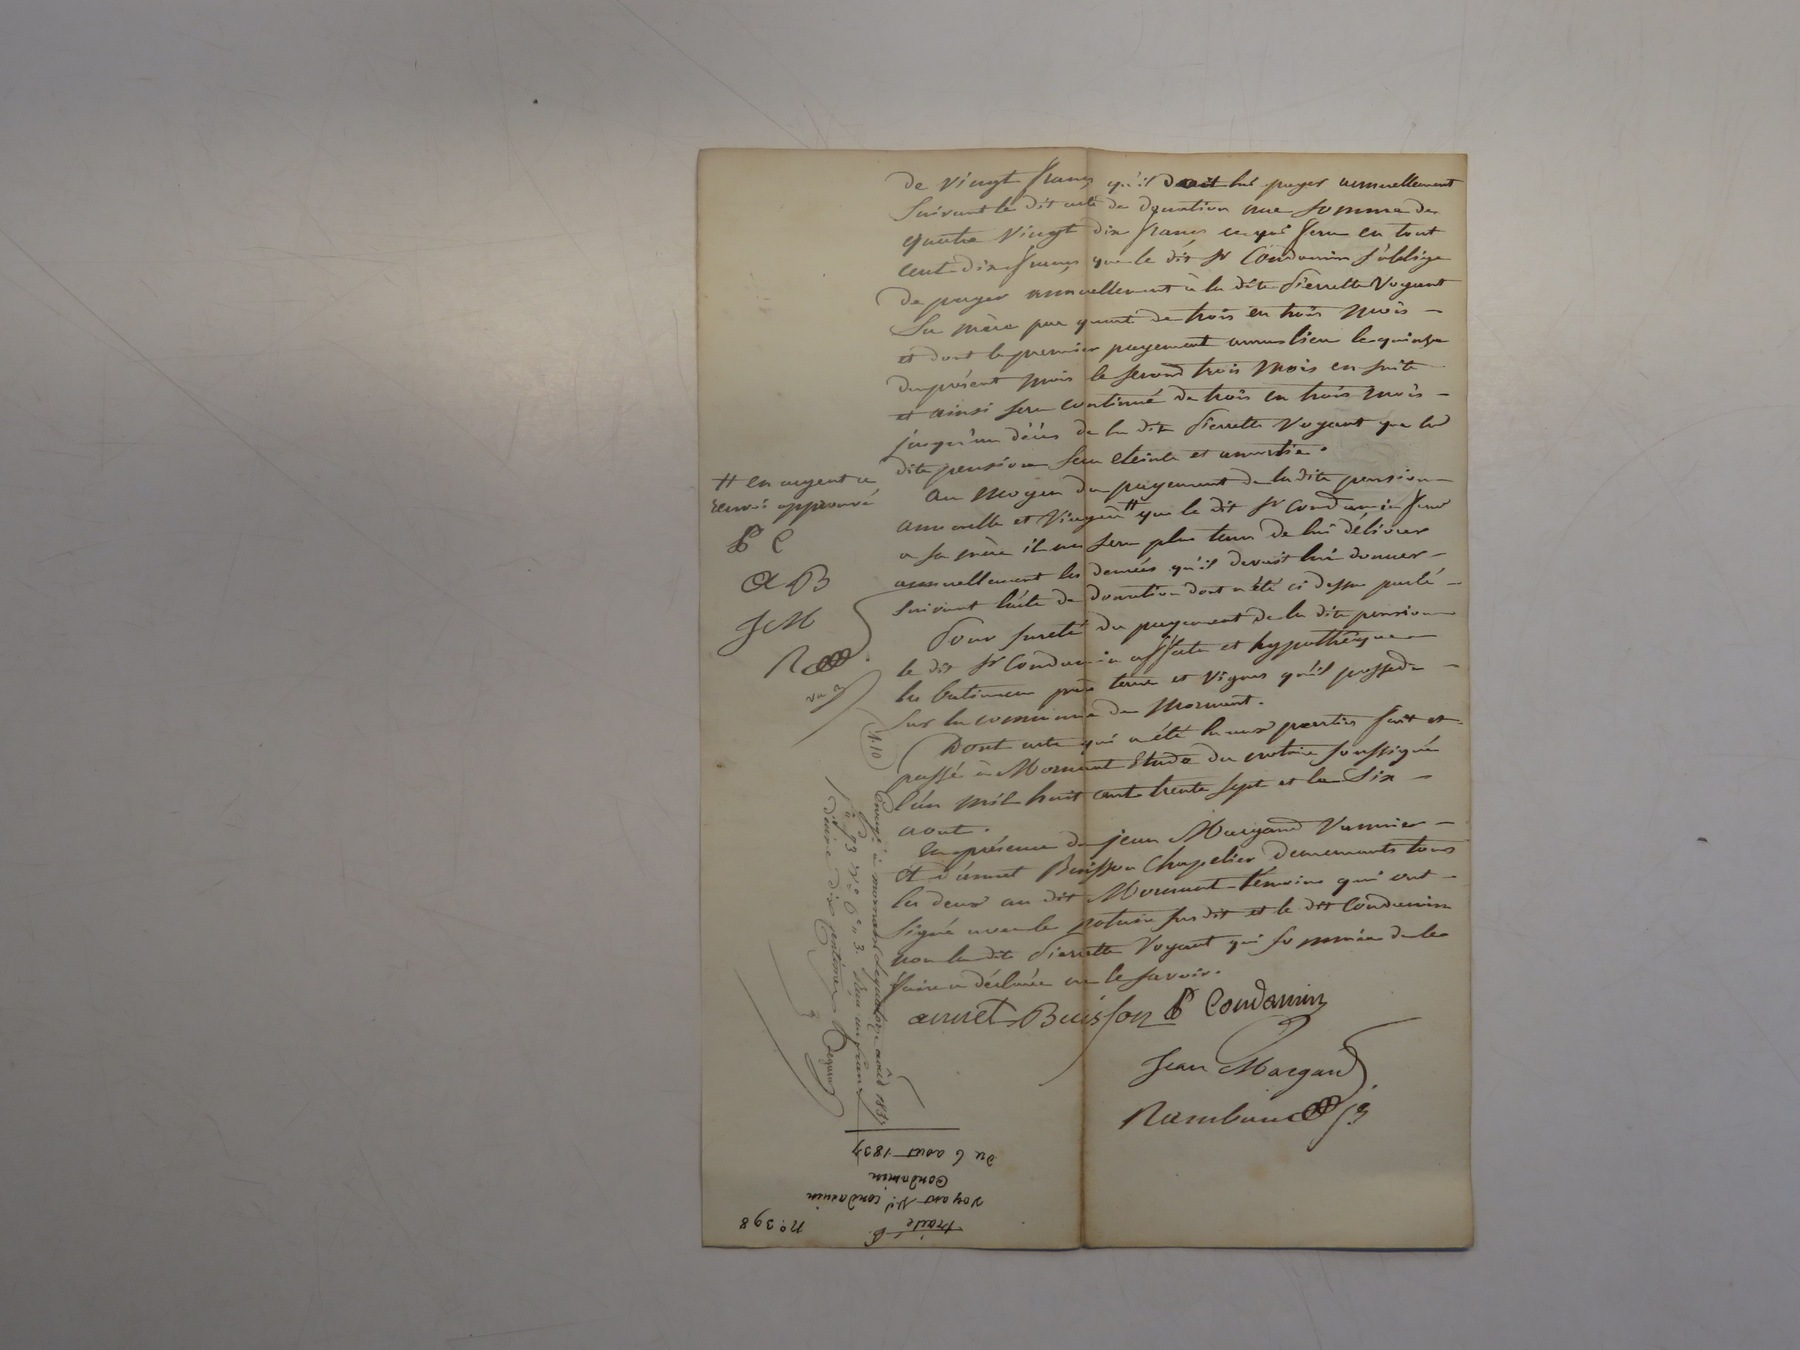 de vingt francs qu'il doit lui payer annuellement
suivant le dit acte de donation une somme de
quatre vingt dix francs ce qui fera en tout
cent dix francs que le dit Sr Condamin s'oblige
de payer annuellement à la dite Pierrette Voyant
sa mère par quart de trois en trois mois –
et dont le premier payement aura lieu le quinze
du présent mois le second trois mois en suite
et ainsi sera continué de trois en trois mois –
jusqu'au décès de la dite Pierrette Voyant que la
dite pension sera eteinte et amortie.
Au moyen du payement de la dite pension –
annuelle et viagère # que le dit Sr Condamin fera
a sa mère il ne sera plus tenu de lui délivrer
annuellement les denrées qu'il devait lui donner –
suivant l'acte de donation dont a été ci dessus parlé –
Pour sureté du payement de la dite pension
le dit Sr Condamin affecte et hypothèque –
les batimens prés terres et vignes qu'il possede –
sur la commune de Mornant.
Dont acte qui a été lu aux parties fait et
passé à Mornant Etude du notaire soussigné
l'an mil huit cent trente sept et le Six –
aout.
En présence de jean Margand Vannier –
et d'annet Buisson Chapelier demeurants tous
les deux au dit Mornant témoins qui ont –
signé avec le notaire sus dit et le dit Condamin
non la dite Pierrette Voyant qui sommée de le
faire a déclaré ne le savoir.
annet Buisson P Condamin
Jean Margand
Rambaud
# en argent ce
renvoi approuvé
P C
A B
J M
R
1.10
Enregé à mornant le quatorze août 1837
fo 93 Vo Ce 3. Reçu un franc
décime dix centimes
du 6 aout 1837
Condamin
Voyant Ve condamin
traité
no. 398